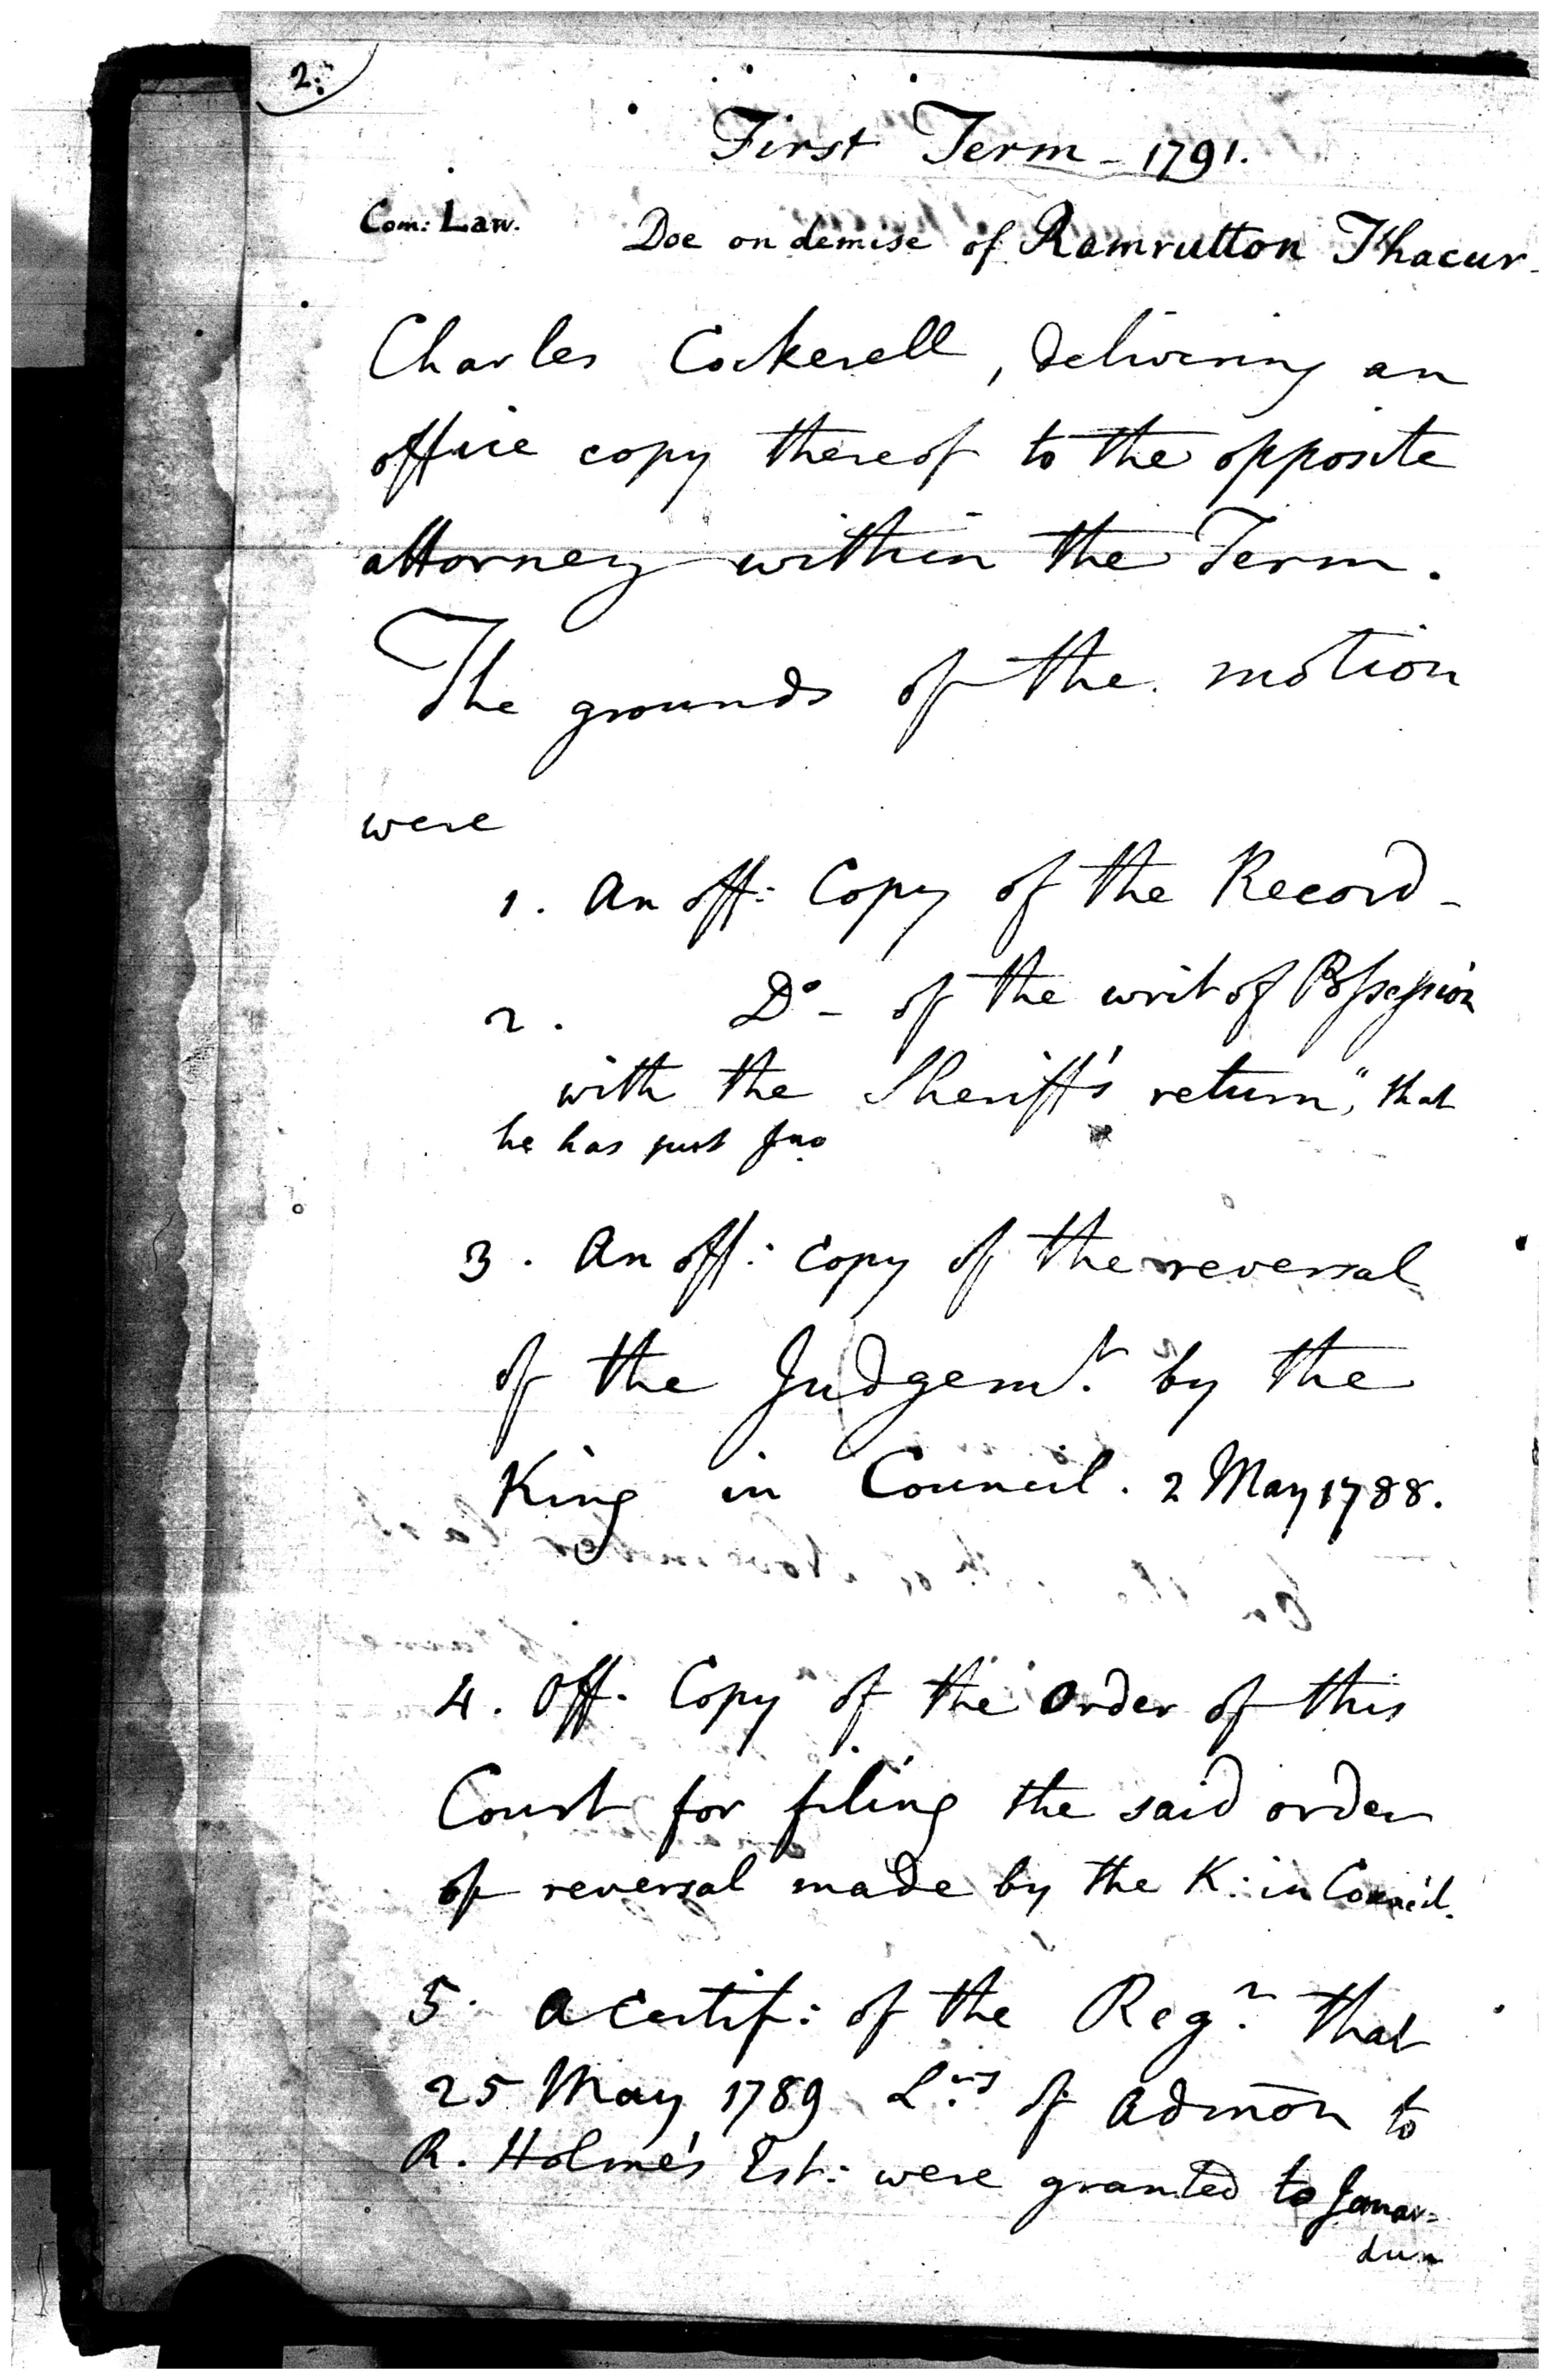 2.
First Term - 1791.
Com: Law. Doe on demise of Ramrutton Thacur -
Charles Cockerell, delivering an
office copy thereof to the opposite
attorney within the Term.
The grounds of the motion
were
1. An off: Copy of the Record -
2. Do - of the writ of Possession
with the Sheriff's return, "that
he has put
3. An off: copy of the reversal
of the Judgemt. by the
King in Council. 2 May 1788.
4. Off. Copy of the Order of this
Court for filing the said order
of reversal made by the K: in Council.
5. A certif: of the Regr. that
25 May 1789 Lrs of Admōn to
R. Holme's Est: were granted to Janar=
dun